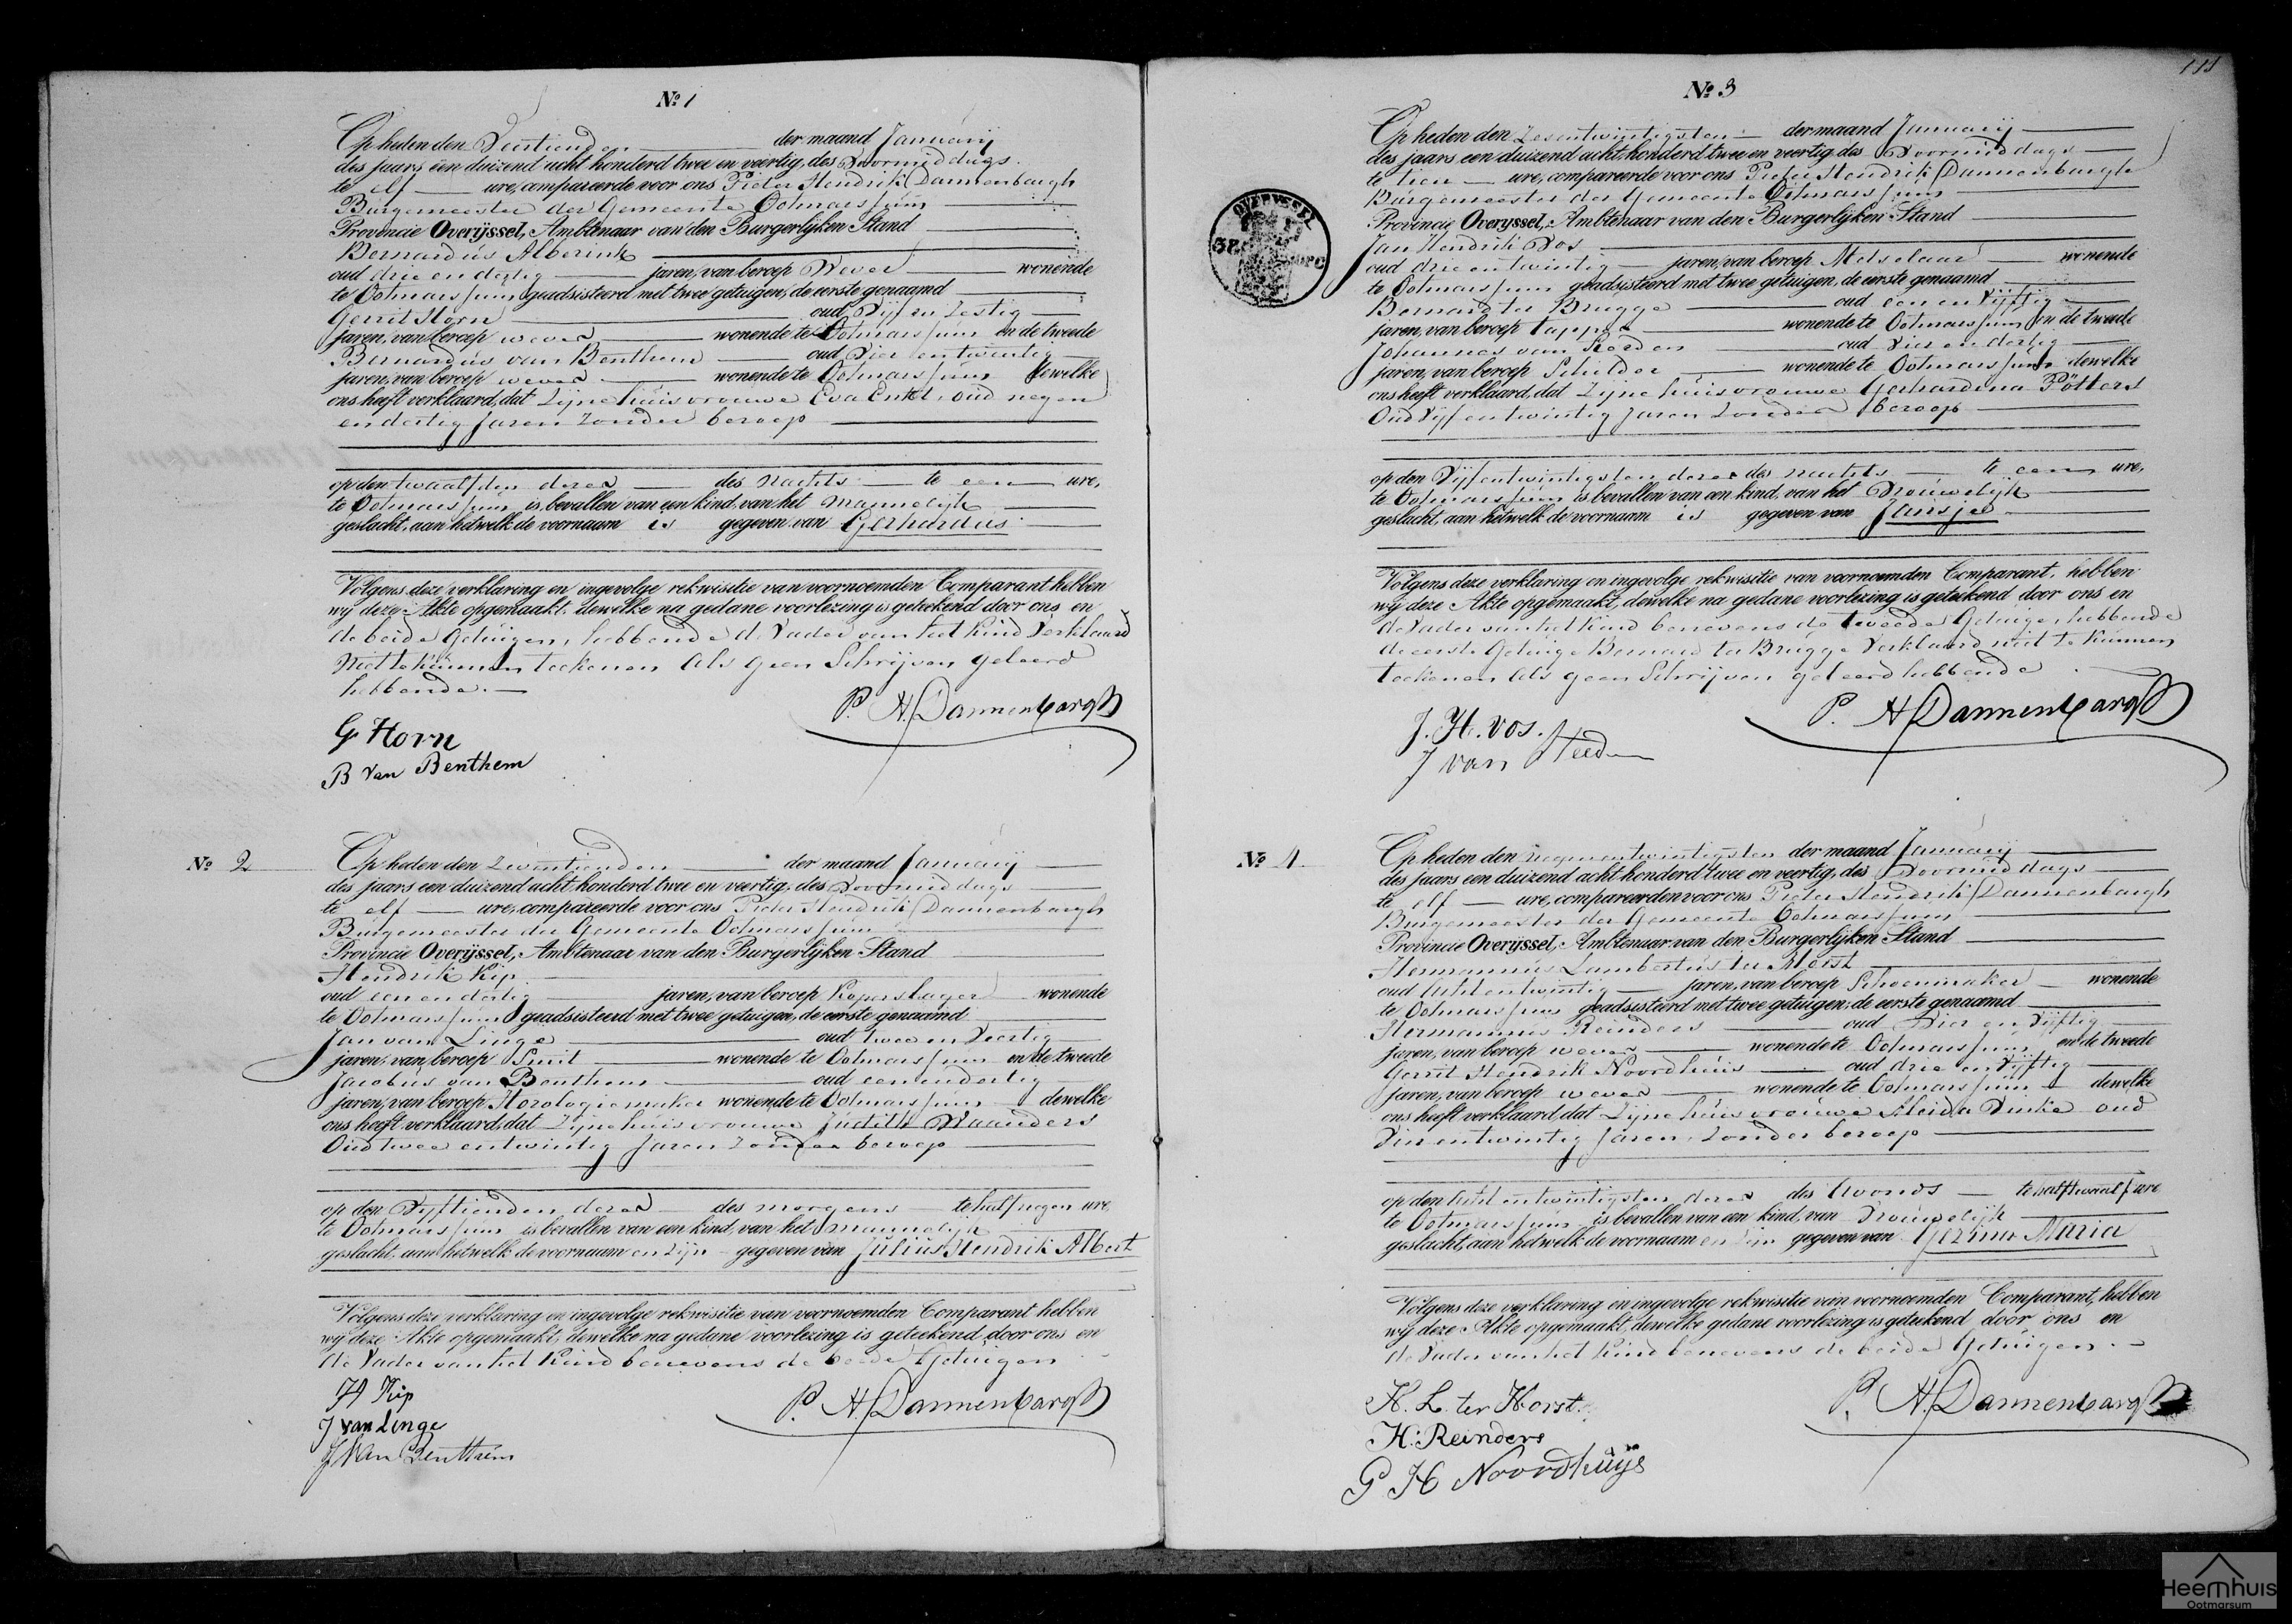 No 1
Op heden den Veertienden der maand Januarij
des jaars een duizend acht honderd twee en veertig, des Voormiddags
te elf ure, compareerde voor ons Pieter Hendrik Dannenbargh
Burgemeester der Gemeente Ootmarssum
Provincie Overijssel, Ambtenaar van den Burgerlijken Stand
Bernardus Alberink
oud drie en dertig jaren, van beroep Wever wonende
te Ootmarssum geadsisteerd met twee getuigen, de eerste genaamd
Gerrit Horn oud Vijf en Zestig
jaren, van beroep wever wonende te Ootmarssum en de tweede
Bernardus van Benthem oud Vier en twintig
jaren, van beroep wever wonende te Ootmarssum dewelke
ons heeft verklaard, dat Zijne huisvrouwe Eva Enkt, oud negen
en dertig Jaren Zonder beroep
op den twaalfden dezer des nachts te een ure,
te Ootmarssum is bevallen van een kind, van het mannelijk
geslacht, aan hetwelk de voornaam is gegeven van Gerhardus
Volgens deze verklaring en ingevolge rekwisitie van voornoemden Comparant hebben
wij deze Akte opgemaakt, dewelke na gedane voorlezing is geteekend door ons en
de beide Getuigen, hebbende de Vader van het Kind Verklaard
Niet te kunnen teekenen als geen Schrijven geleerd
hebbende.
P. H. Dannenbargh
G Horn
B Van Benthem
No 2
Op heden den Zeventienden der maand Januarij
des jaars een duizend acht honderd twee en veertig, des Voormiddags
te elf ure, compareerde voor ons Pieter Hendrik Dannenbargh
Burgemeester der Gemeente Ootmarssum
Provincie Overijssel, Ambtenaar van den Burgerlijken Stand
Hendrik Kip
oud een en dertig jaren, van beroep Koperslager wonende
te Ootmarssum geadsisteerd met twee getuigen, de eerste genaamd
Jan van Linge oud twee en Veertig
jaren, van beroep Smit wonende te Ootmarssum en de tweede
Jacobus van Benthem oud een en dertig
jaren, van beroep Horologiemaker wonende te Ootmarssum dewelke
ons heeft verklaard, dat Zijne huisvrouwe Judith Waanders
Oud twee en twintig Jaren Zonder beroep
op den Vijftienden dezer des morgens te half negen ure,
te Ootmarssum is bevallen van een kind, van het mannelijk
geslacht, aan hetwelk de voornaamen zijn gegeven van Julius Hendrik Albert
Volgens deze verklaring en ingevolge rekwisitie van voornoemden Comparant hebben
wij deze Akte opgemaakt, dewelke na gedane voorlezing is geteekend door ons en
de Vader van het Kind benevens de beide Getuigen
P. H. Dannenbargh
H Kip
J van Linge
J Van Benthem
111
No 3
Op heden den Zesentwintigsten der maand Januarij
des jaars een duizend acht honderd twee en veertig des Voormiddags
te tien ure, compareerde voor ons Pieter Hendrik Dannenbargh
Burgemeester der Gemeente Ootmarssum
Provincie Overijssel, Ambtenaar van den Burgerlijken Stand
Jan Hendrik Vos
oud drie entwintig jaren, van beroep Metselaar wonende
te Ootmarssum geadsisteerd met twee getuigen, de eerste genaamd
Bernard ter Brugge oud een en Vijftig
jaren, van beroep tapper wonende te Ootmarssum en de tweede
Johannes van Reeden oud Vier en dertig
jaren, van beroep Schilder wonende te Ootmarssum dewelke
ons heeft verklaard, dat Zijne huisvrouwe Gerhardina Pötters
Oud Vijf entwintig Jaren Zonder beroep
op den Vijfentwintigsten dezer des nachts te een ure,
te Ootmarssum is bevallen van een kind, van het Vrouwelijk
geslacht, aan hetwelk de voornaam is gegeven van Jansje
Volgens deze verklaring en ingevolge rekwisitie van voornoemden Comparant, hebben
wij deze Akte opgemaakt, dewelke na gedane voorlezing is geteekend door ons en
de Vader van het Kind benevens de tweede Getuige, hebbende
de eerste Getuige Bernard ter Brugge Verklaard niet te kunnen
teekenen als geen Schrijven geleerd hebbende
P. H. Dannenbargh
J. H. Vos.
J van Reeden
OVERYSSEL
No 4
Op heden den negenentwintigsten der maand Januarij
des jaars een duizend acht honderd twee en veertig, des Voormiddags
te elf ure, compareerden voor ons Pieter Hendrik Dannenbargh
Burgemeester der Gemeente Ootmarssum
Provincie Overijssel, Ambtenaar van den Burgerlijken Stand
Hermannus Lambertus ter Horst
oud Acht entwintig jaren, van beroep Schoenmaker wonende
te Ootmarssum geadsisteerd met twee getuigen, de eerste genaamd
Hermannus Reinders oud Vier en Vijftig
jaren, van beroep wever wonende te Ootmarssum en de tweede
Gerrit Hendrik Noordhuis oud drie en Vijftig
jaren, van beroep wever wonende te Ootmarssum dewelke
ons heeft verklaard, dat Zijne huisvrouwe Aleida Vinke oud
Vier entwintig Jaren, Zonder beroep
op den Acht entwintigsten dezer des Avonds te half twaalf ure
te Ootmarssum is bevallen van een kind, van Vrouwelijk
geslacht, aan hetwelk de voornaamen zijn gegeven van Gezina Maria
Volgens deze verklaring en ingevolge rekwisitie van voornoemden Comparant, hebben
wij deze Akte opgemaakt, dewelke gedane voorlezing is geteekend door ons en
de Vader van het Kind benevens de beide Getuigen.
P. H. Dannenbargh
H. L. ter Horst.
H. Reinders
G H Noordhuijs
Heemhuis
Ootmarsum